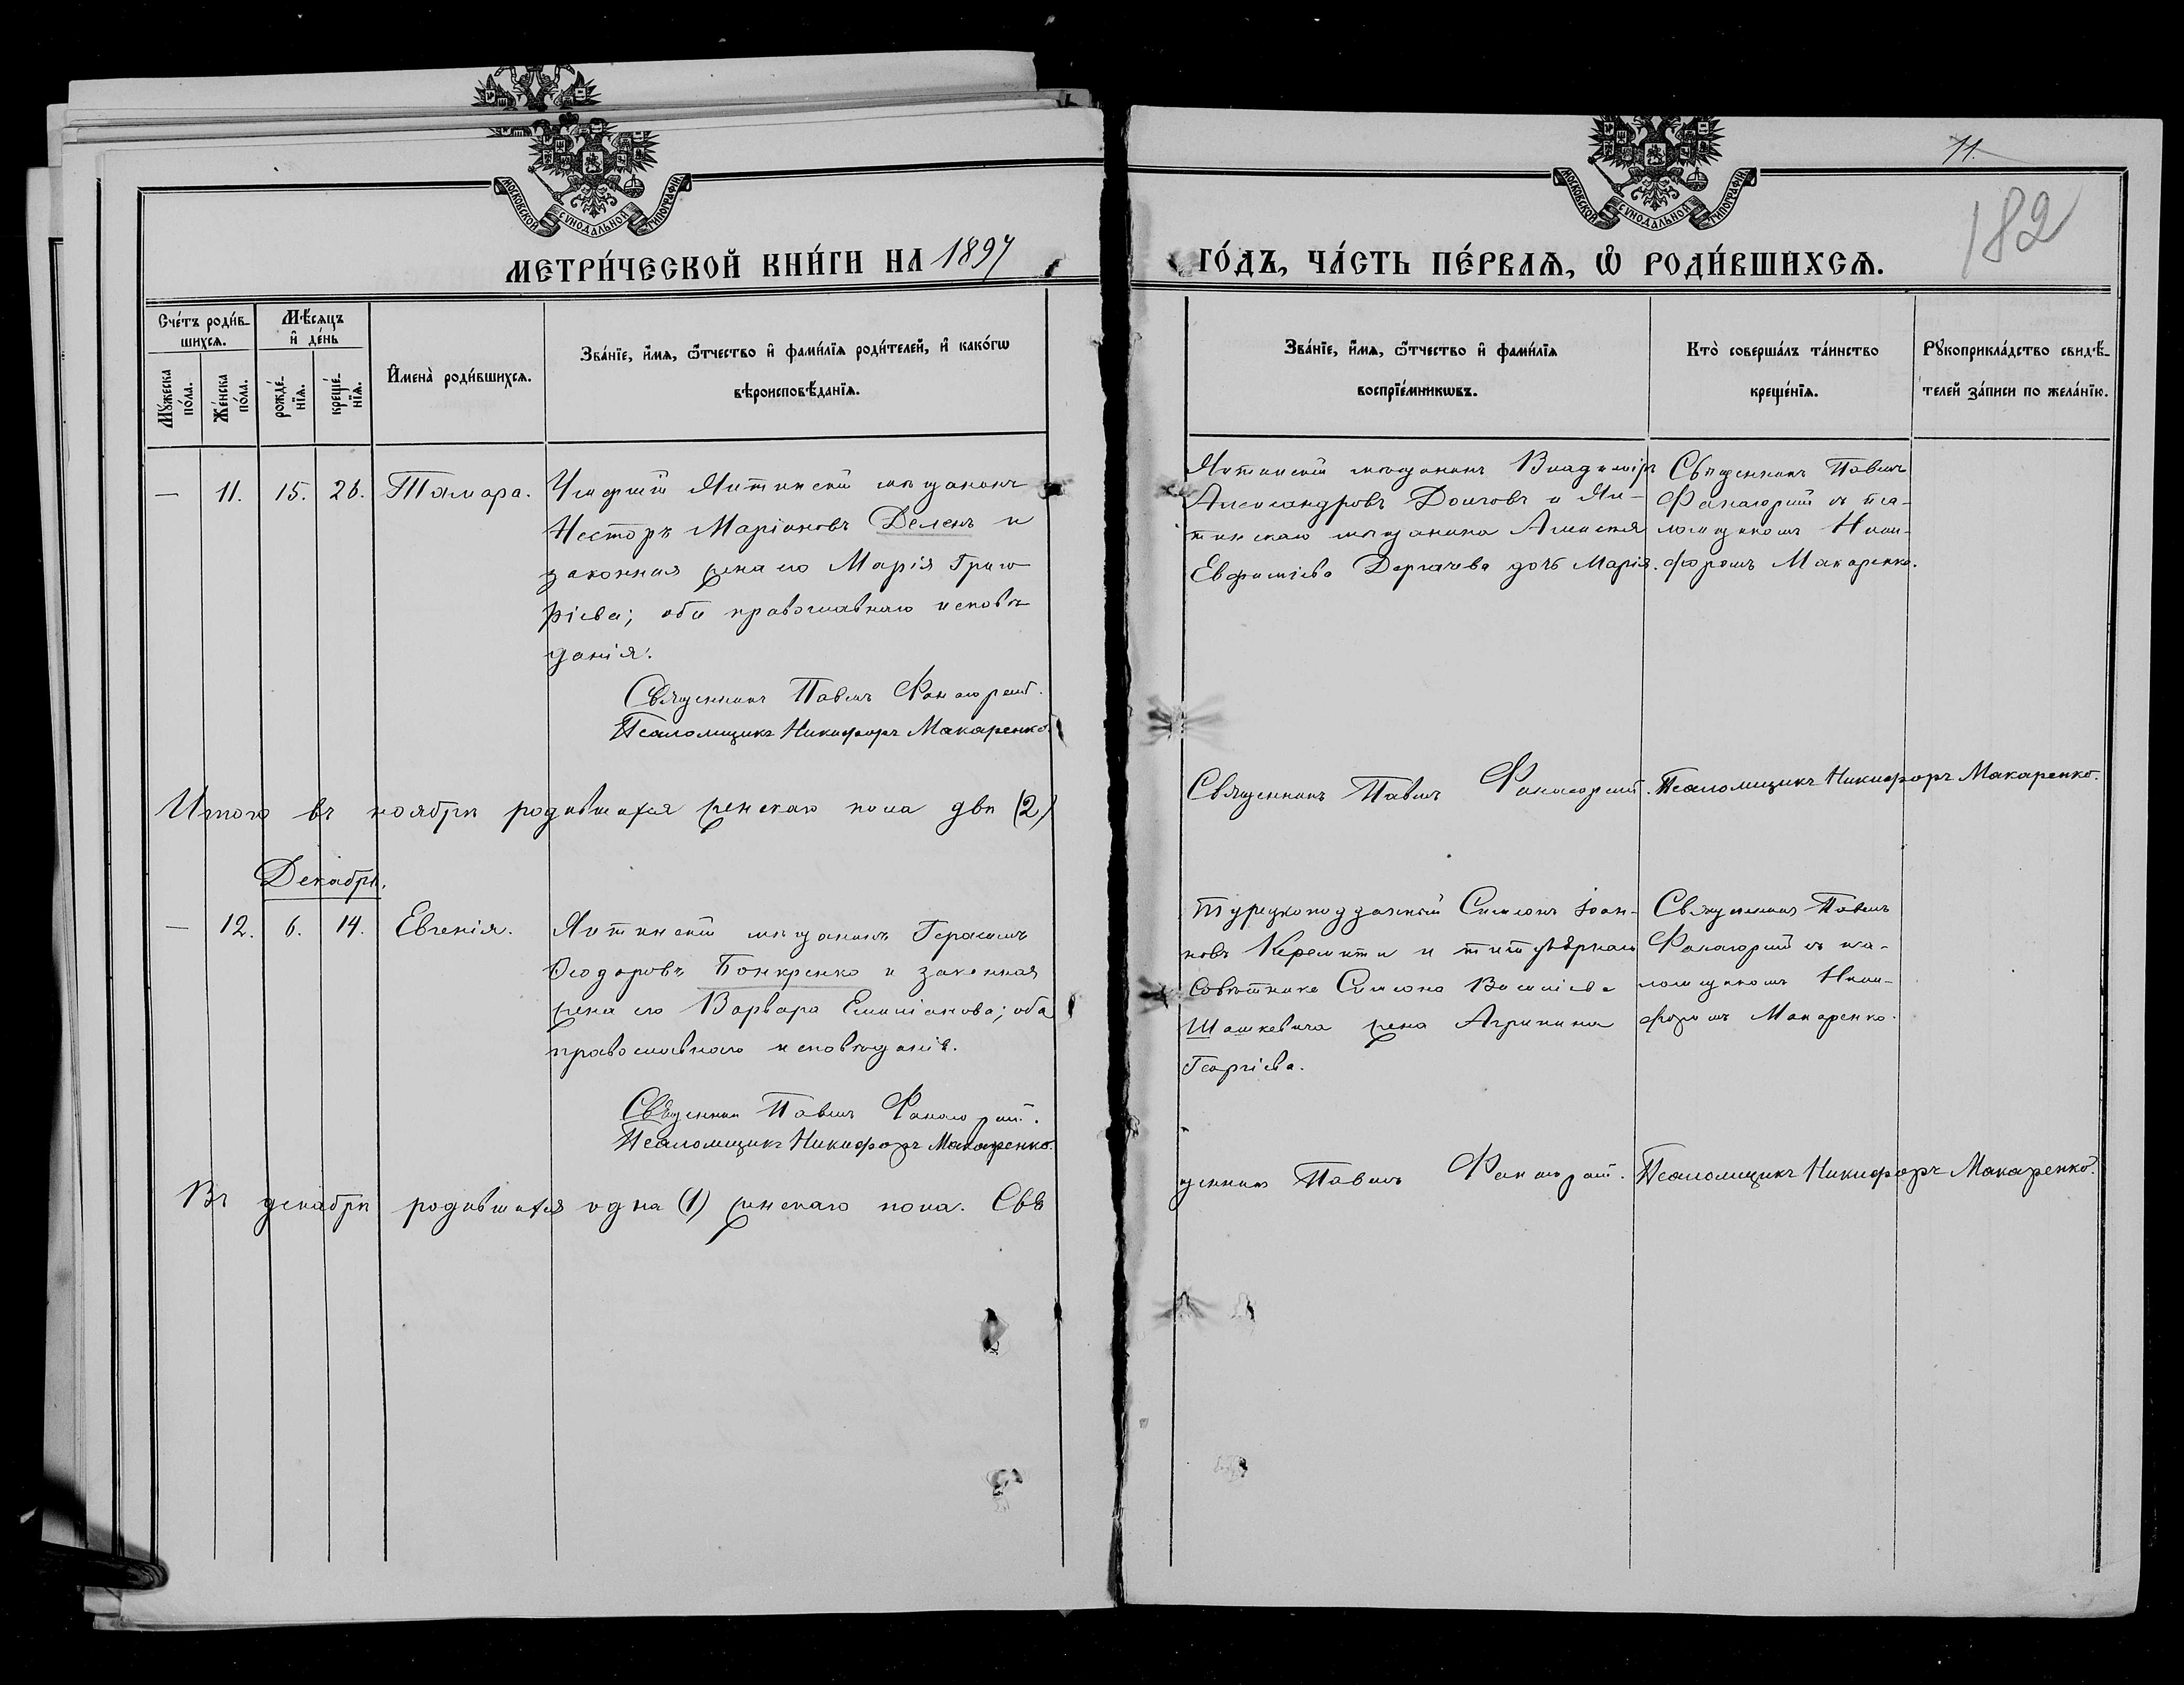 МОСКОВСКОЙ СѴНОДАЛЬНОЙ ТИПОГРАФІИ
МОСКОВСКОЙ СѴНОДАЛЬНОЙ ТИПОГРАФІИ
11
182
МЕТРИ́ЧЕСКОЙ КНИ́ГИ НА 1897
ГО́ДЪ, ЧА́СТЬ ПЕ́РВАѦ, Ѡ РОДИ́ВШИХСѦ.
Сче́тъ роди́в-
шихсѧ.
Мꙋ́жеска по́ла.
Же́нска по́ла.
Мѣ́сѧцъ
и де́нь
рожде́-
нїѧ.
креще́-
нїѧ.
Имена̀ роди́вшихсѧ.
Зва́нїе, и́мѧ, ѻ́тчество и фами́лїѧ роди́телей, и како́гѡ
вѣроисповѣ́данїѧ.
Зва́нїе, и́мѧ, ѻ́тчество и фами́лїѧ
воспрїе́мникѡвъ.
Кто̀ соверша́лъ та́инство
креще́нїѧ.
Рꙋкоприкла́дство свидѣ́-
телей за́писи по жела́нїю.
— 11. 15. 26. Тамара.
Ялтинскій мѣщанинъ
Несторъ Маріановъ Деленъ и
законная жена его Марія Григо
рьева; оба православнаго исповѣ
данія.
Священникъ Павелъ Фанагорскій.
Псаломщикъ Никифоръ Макаренко.
Ялтинскій мѣщанинъ Владиміръ
Александровъ Долговъ и Ял-
тинскаго мѣщанина Алексѣя
Евфиміева Дергачева дочь Марія.
Священникъ Павелъ
Фанагорскій съ пса-
ломщикомъ Ники-
форомъ Макаренко.
Итого въ ноябрѣ родившихся женскаго пола двѣ (2)
Священникъ Павелъ Фанагорскій. Псаломщикъ Никифоръ Макаренко.
Декабрь.
— 12. 6. 14. Евгенія.
Ялтинскій мѣщанинъ Герасимъ
Ѳеодоровъ Бонкренко и законная
жена его Варвара Емиліанова; оба
православнаго исповѣданія.
Священникъ Павелъ Фанагорскій.
Псаломщикъ Никифоръ Макаренко.
Турецкоподданный Симеонъ Іоан-
новъ и титулярнаго
Совѣтника Симеона Василіева
Шашкевича жена Агрипина
Георгіева.
Священникъ Павелъ
Фанагорскій съ пса-
ломщикомъ Ники-
форомъ Макаренко.
Въ декабрѣ родившихся одна (1) женскаго пола. Свя
щенникъ Павелъ Фанагорскій. Псаломщикъ Никифоръ Макаренко.